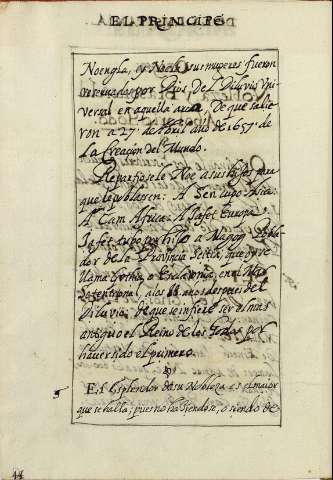 EL PRINCIPE
Noengla, y Noela sus mugeres fueron
reseruados por Dios, del Diluvio Vni-
versal en aquella arca, de que salie
ron a 27 de Abril año de 1657 de
La Creaçion del Mundo.
Repartiosele Noe a sus hijos para
que le poblasen: A Sen cupo Asia:
A Cam Africa: A Jafet Europa
Jafet tubo por hijo a Magog Pobla-
dor de la Provincia Scitia, que oy se
llama Gothia o Esclavonia, en el
Setentrional, a los 88 anos despues del
Diluvio: de que se infiere ser el mas
antiguo el Reino de los Godos por
hauer sido el primero.
El Esplendor de su Nobleza es el maior
que se halla; pues no habiendose, o siendo de
44